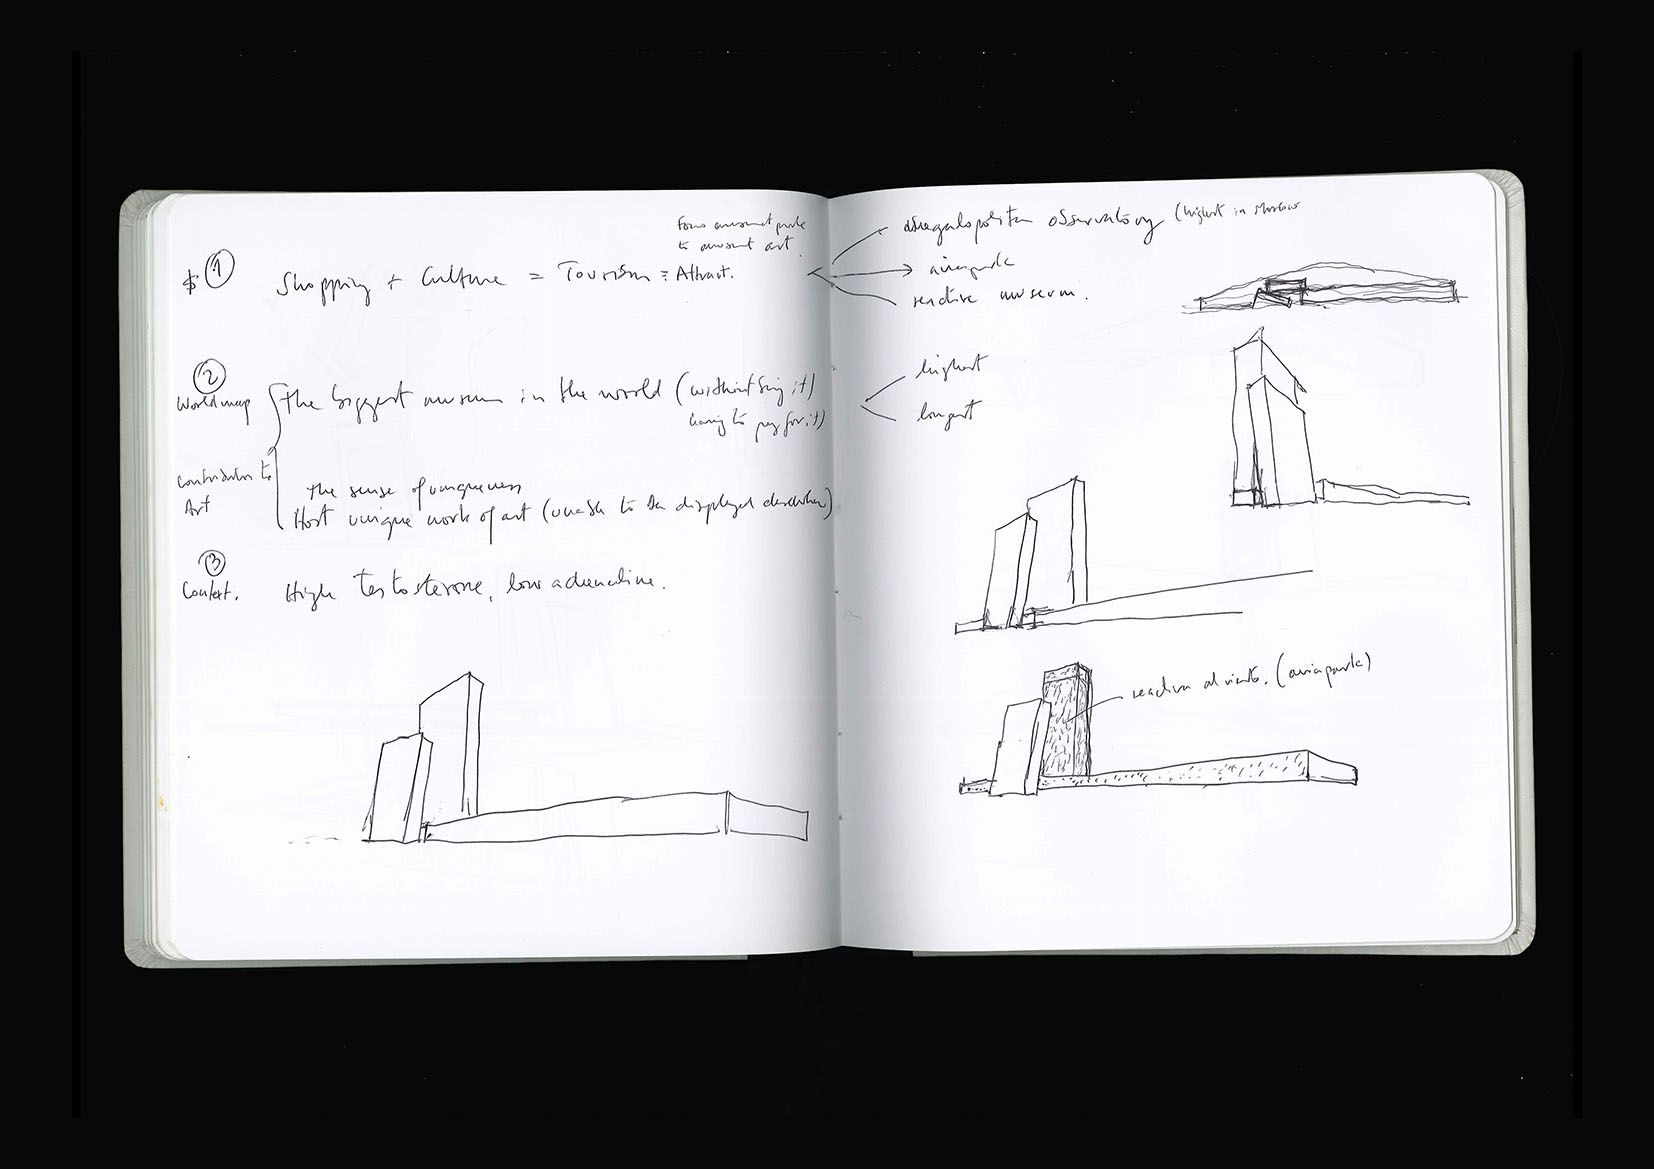 from amusement park
to amusement art.
$ 1 Shopping + Culture = Tourism = Attract.
2
World map
the biggest museum in the world (without being it)
having to pay for it)
Contribution to
Art
the sense of uniqueness
Host unique work of art (unable to be displayed elsewhere)
3
Context. High testosterone, low adrenaline.
observatory (highest in Moscow
aviapark
reactive museum.
highest
longest
(aviapark)